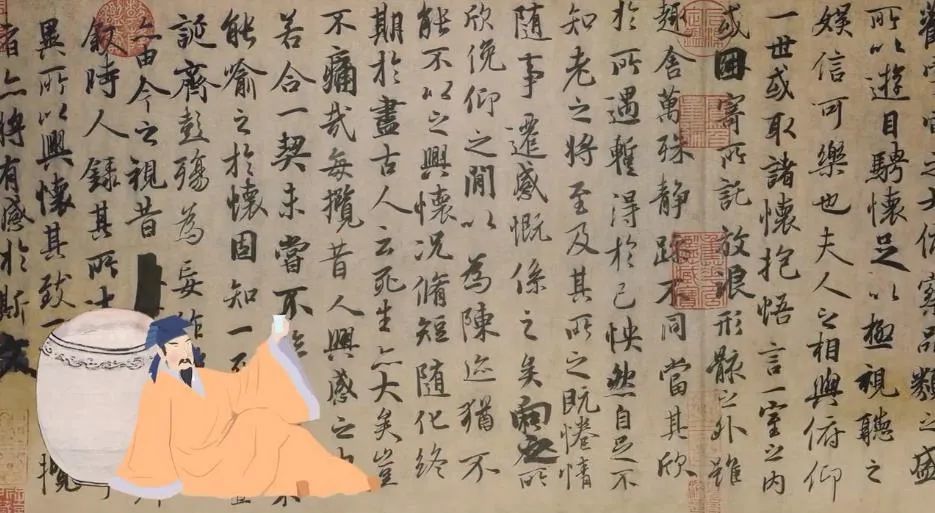 觀宇宙之大俯察品類之盛
所以遊目騁懷足以極視聽之
娛信可樂也夫人之相與俯仰
一世或取諸懷抱悟言一室之內
或因寄所託放浪形骸之外雖
趣舍萬殊静躁不同當其欣
於所遇蹔得於己怏然自足不
知老之將至及其所之既惓情
隨事遷感慨係之矣向之所
欣俛仰之閒以為陳迹猶不
能不以之興懷況脩短隨化終
期於盡古人云死生亦大矣豈
不痛哉每攬昔人興感之
若合一契未嘗不
能喻之於懷固知一
誕齊彭殤為妄作
亦由今之視昔
敘時人錄其所
異所以興懷其致一 攬
者亦將有感於斯文